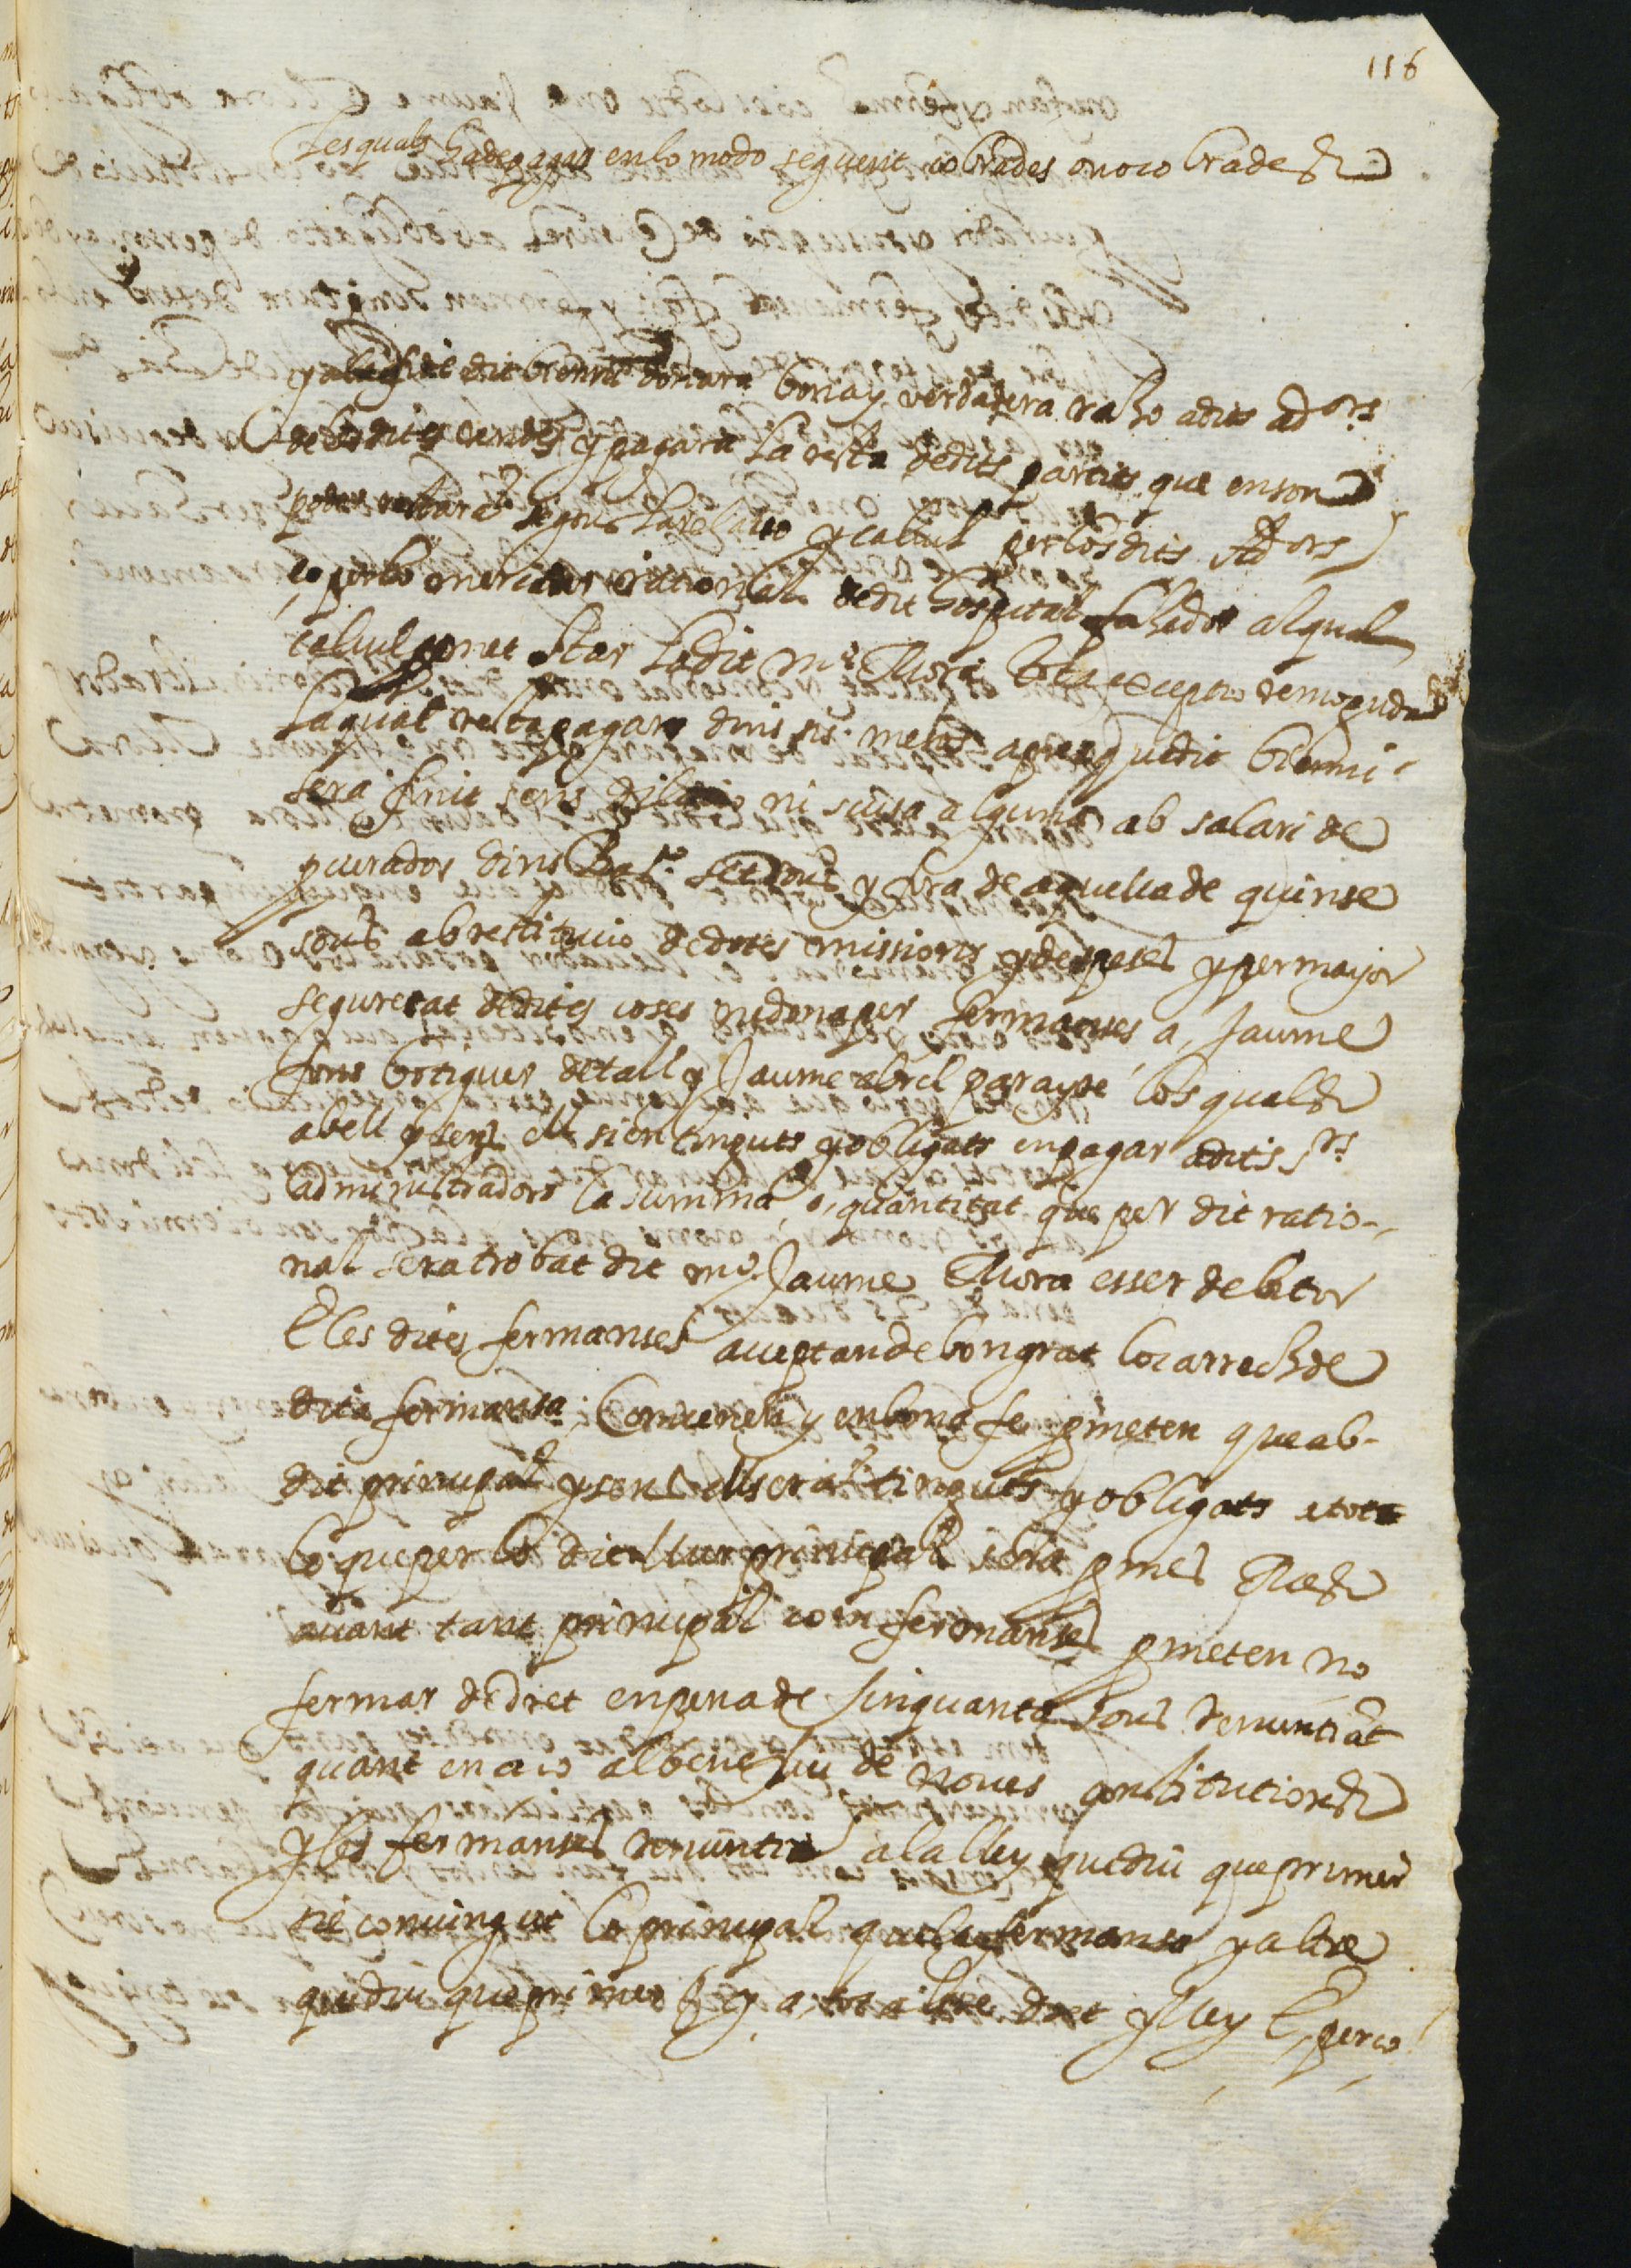 116
Les quals ha de pagar en lo modo seguent cobrades o no cobrades
y a la fi de dit bienni donara bona y verdadera raho a dits adors
de les dites rendes y pagara la resta de dits partits que en son
poder restara segons la relatio y calcul per los dits Adors
o, per lo mercader rational de dit hospital fahedor al qual
calcul promet star lo dit mo Mora tota exceptio remoguda
la qual resta pagara dins sis mesos apres que dit bienni
sera finit sens dilatio ni scusa alguna ab salari de
procurador dins Bara set sous y fora de aquella de quinse
sous ab restitucio de dotes missions y despeses y per major
seguretat de dites coses ne dona per fermanses a, Jaume
fons botiguer de tall y Jaume abril parayre los quals
ab ell y sens ell sien tinguts y obligats en pagar a dits srs
administradors la summa, o, quantitat que per dit ratio-
nal sera trobat dit mo Jaume Mora esser debitor
E les dites fermanses acceptan de bon grat lo carrech de
dita fermansa; Convenen y en bona fe pmeten que ab-
dit principal y sens ell seran tinguts y obligats a tot
lo que per lo dit llur principal sera pmes Mes
avant tant principal com fermanses pmeten no
fermar de dret en pena de sinquanta sous renuntiat
quant en aço al benefici de noves constitutions
y les fermanses renuntien a la lley que diu que primer
sie convingut lo principal que la fermansa y altre
que diu que primer &cy a, tot altre dret y lley E, perço